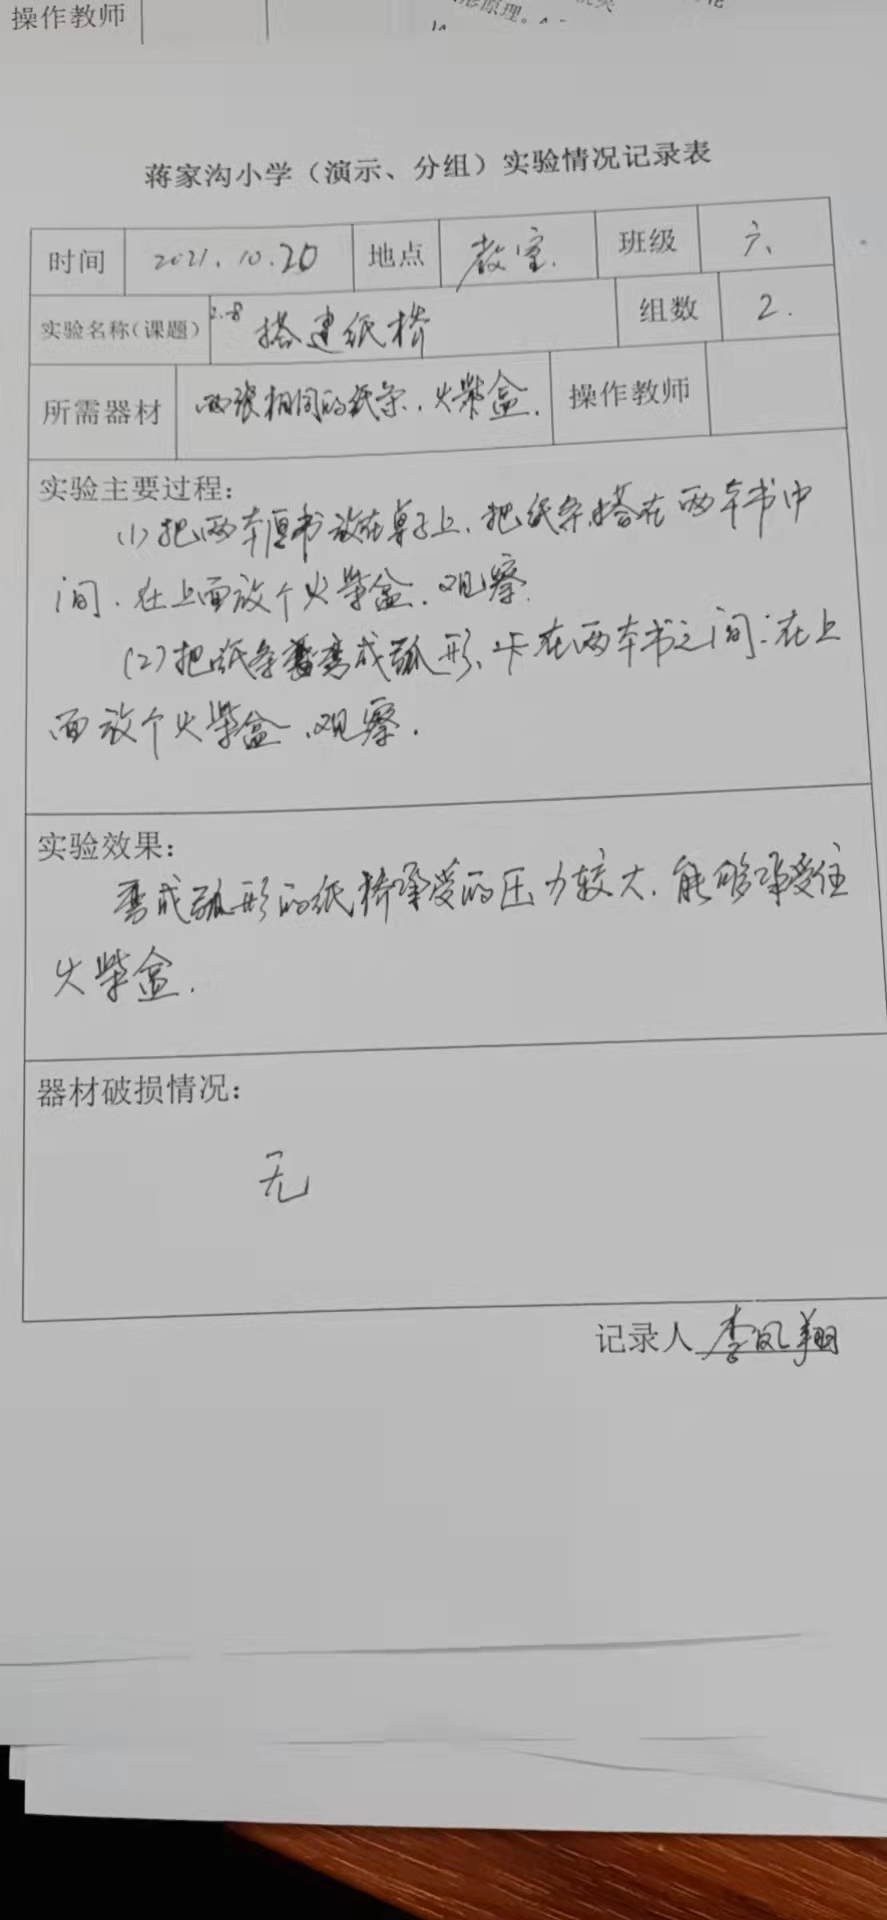 操作教师
原理。
蒋家沟小学（演示、分组）实验情况记录表
时间 2021.10.20 地点 教室. 班级 六、
实验名称（课题） 2.8 搭建纸桥 组数 2.
所需器材 两张相同的纸条，火柴盒. 操作教师
实验主要过程：
(1)把两本厚书放在桌子上，把纸条搭在两本书中
间，在上面放个火柴盒，观察.
(2)把纸条弯成弧形，卡在两本书之间；在上
面放个火柴盒，观察.
实验效果：
弯成弧形的纸桥承受的压力较大，能够承受住
火柴盒.
器材破损情况：
无
记录人 李凤翔